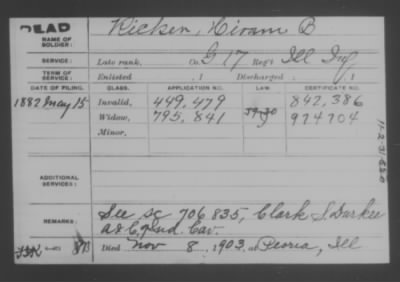 DEAD
NAME OF SOLDIER: Ricker, Hiram B
SERVICE: Late rank, Co. G 17 Reg't Ill Inf
TERM OF SERVICE: Enlisted , 1 Discharged , 1
DATE OF FILING. CLASS. APPLICATION NO. LAW. CERTIFICATE NO.
1882 May 15 Invalid, 449,479 842,386
Widow, 795,841 974704
Minor,
ADDITIONAL SERVICES:
REMARKS: See sc 706835, Clark S. Durkee
Ind. Cav.
Died Nov 8, 1903, at Peoria, Ill